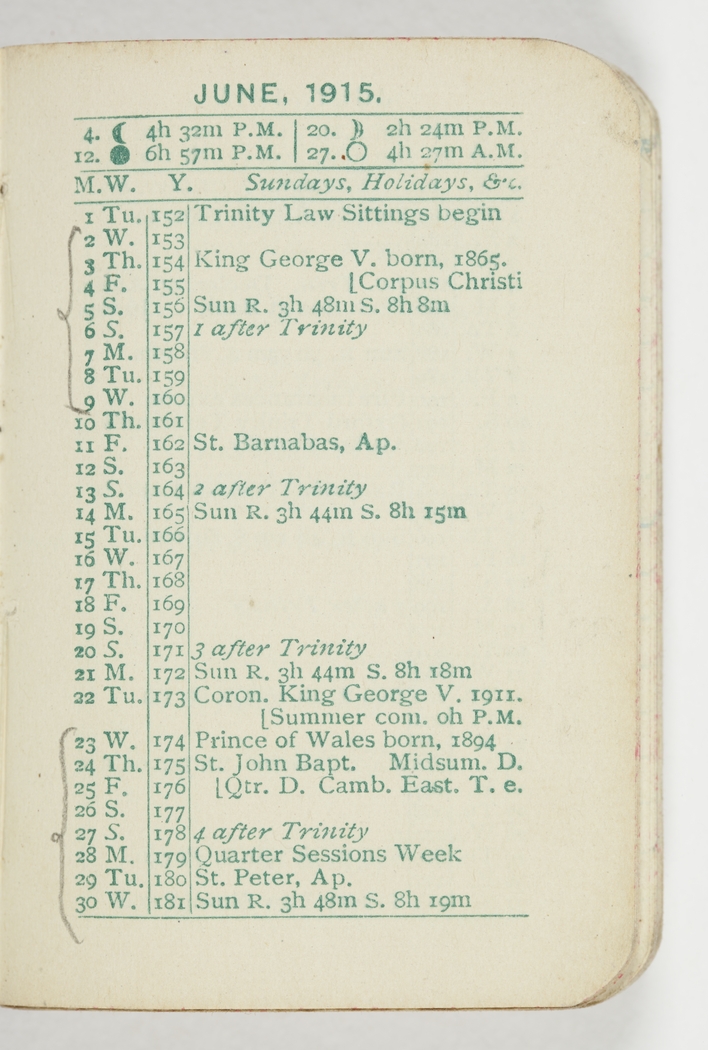 JUNE, 1915.
4. ☾ 4h 32m P.M. | 20. ☽ 2h 24m P.M.
12. ● 6h 57m P.M. | 27. ○ 4h 27m A.M.
M.W. Y. Sundays, Holidays, &c.
1 Tu. 152 Trinity Law Sittings begin
2 W. 153
3 Th. 154 King George V. born, 1865.
4 F. 155 [Corpus Christi
5 S. 156 Sun R. 3h 48m S. 8h 8m
6 S. 157 1 after Trinity
7 M. 158
8 Tu. 159
9 W. 160
10 Th. 161
11 F. 162 St. Barnabas, Ap.
12 S. 163
13 S. 164 2 after Trinity
14 M. 165 Sun R. 3h 44m S. 8h 15m
15 Tu. 166
16 W. 167
17 Th. 168
18 F. 169
19 S. 170
20 S. 171 3 after Trinity
21 M. 172 Sun R. 3h 44m S. 8h 18m
22 Tu. 173 Coron. King George V. 1911.
[Summer com. 0h P.M.
23 W. 174 Prince of Wales born, 1894
24 Th. 175 St. John Bapt. Midsum. D.
25 F. 176 [Qtr. D. Camb. East. T. e.
26 S. 177
27 S. 178 4 after Trinity
28 M. 179 Quarter Sessions Week
29 Tu. 180 St. Peter, Ap.
30 W. 181 Sun R. 3h 48m S. 8h 19m